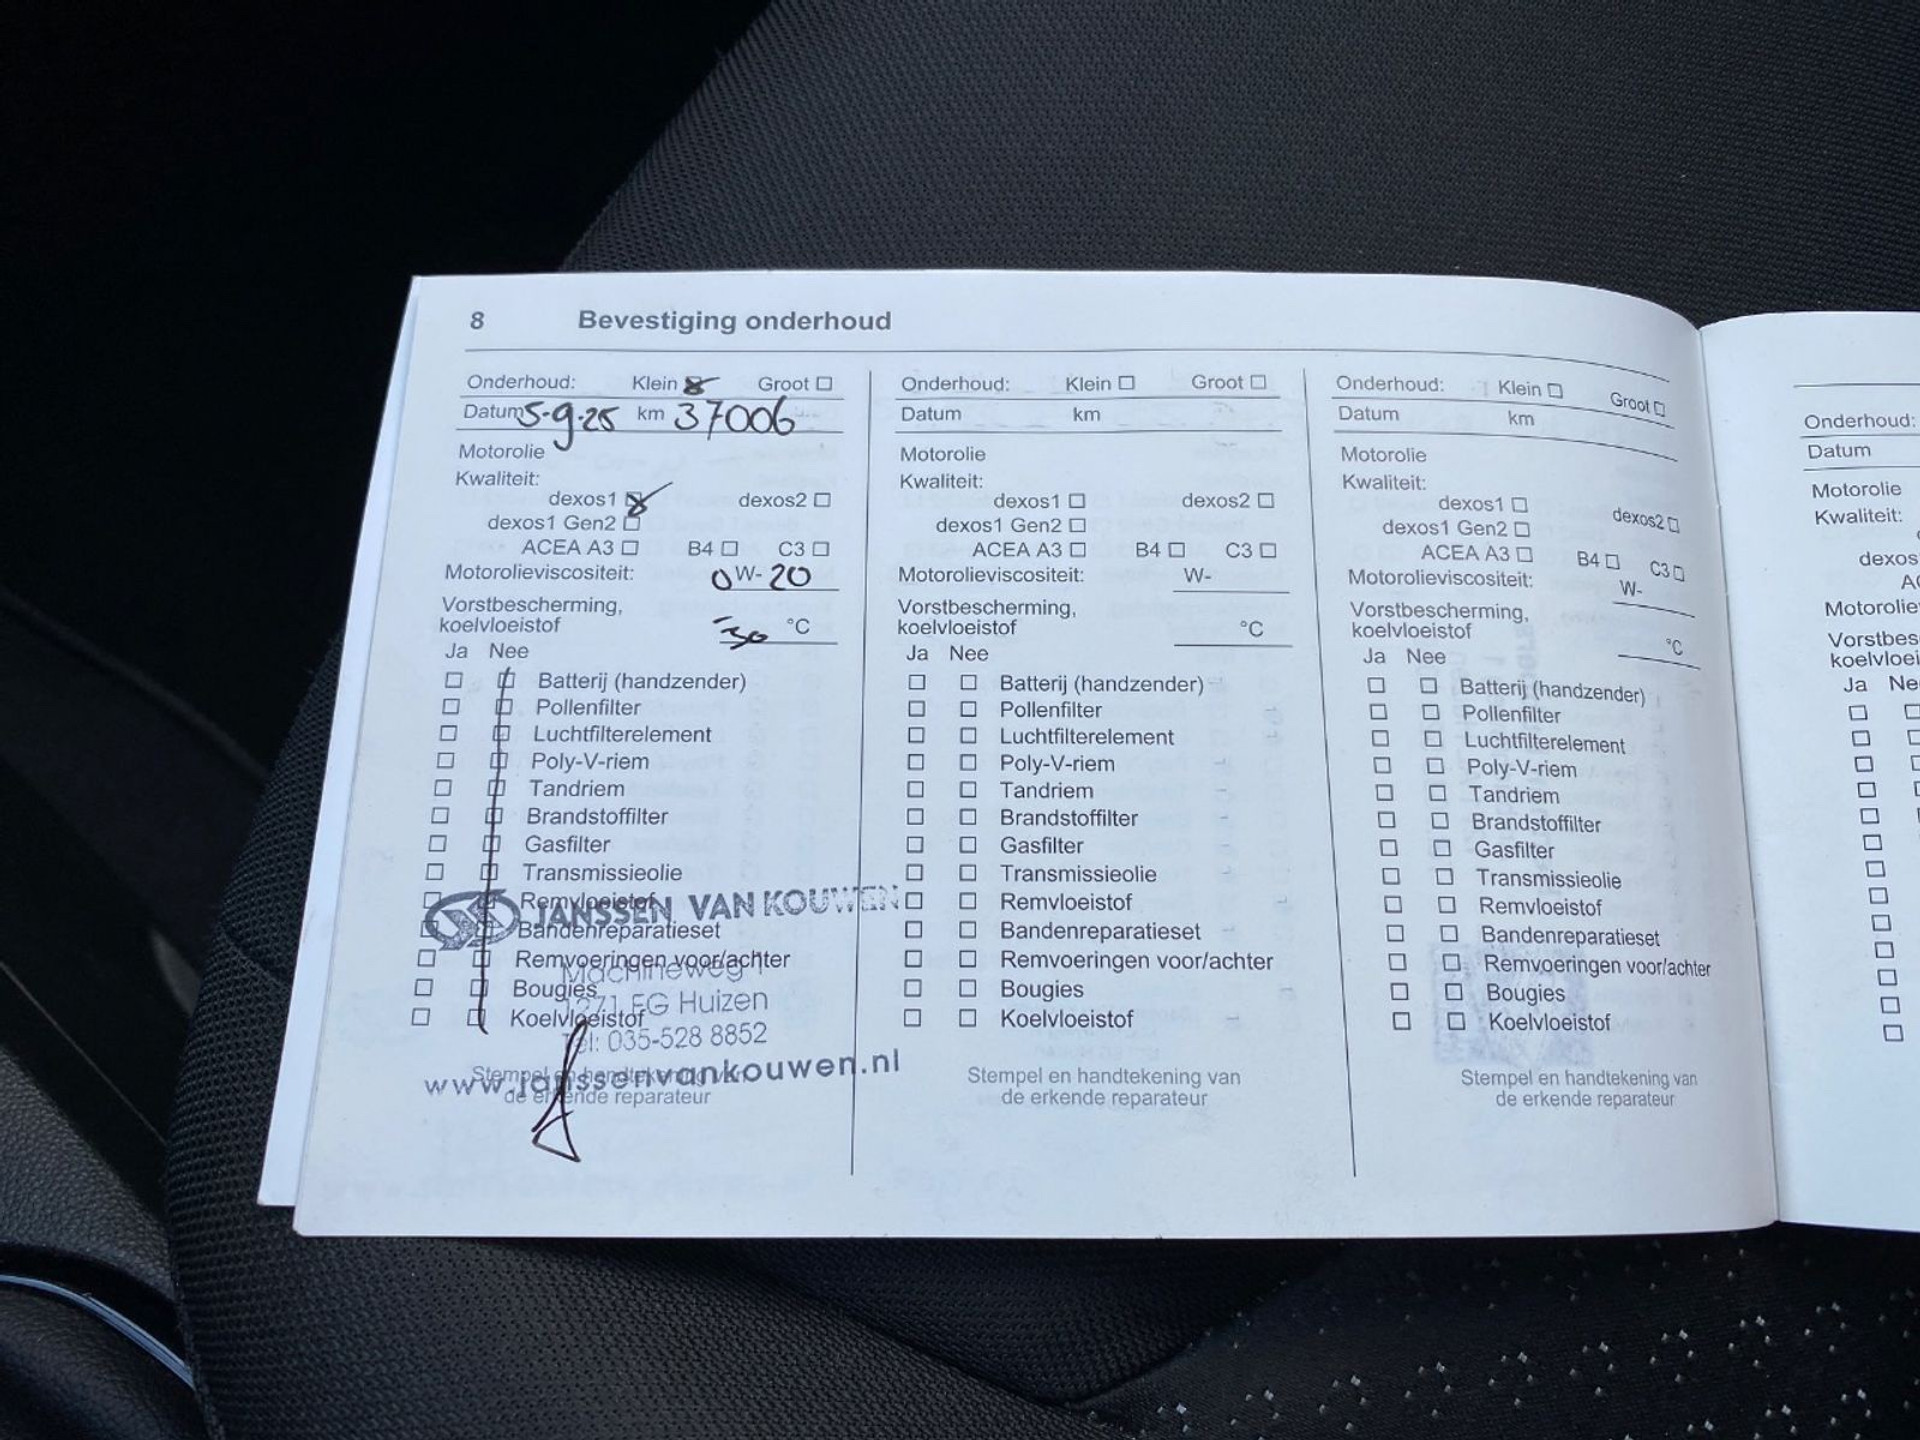 8 Bevestiging onderhoud
Onderhoud: Klein Groot
Datum 5-9-25 km 37006
Motorolie
Kwaliteit:
dexos1 dexos2
dexos1 Gen2
ACEA A3 B4 C3
Motorolieviscositeit: 0W-20
Vorstbescherming,
koelvloeistof -30 °C
Ja Nee
Batterij (handzender)
Pollenfilter
Luchtfilterelement
Poly-V-riem
Tandriem
Brandstoffilter
Gasfilter
Transmissieolie
Remvloeistof
JANSSEN VAN KOUWEN
Bandenreparatieset
Remvoeringen voor/achter
Machineweg 1
Bougies
1271 EG Huizen
Koelvloeistof
Tel: 035-528 8852
Stempel en handtekening van
www.janssenvankouwen.nl
de erkende reparateur
Onderhoud: Klein Groot
Datum km
Motorolie
Kwaliteit:
dexos1 dexos2
dexos1 Gen2
ACEA A3 B4 C3
Motorolieviscositeit: W-
Vorstbescherming,
koelvloeistof °C
Ja Nee
Batterij (handzender)
Pollenfilter
Luchtfilterelement
Poly-V-riem
Tandriem
Brandstoffilter
Gasfilter
Transmissieolie
Remvloeistof
Bandenreparatieset
Remvoeringen voor/achter
Bougies
Koelvloeistof
Stempel en handtekening van
de erkende reparateur
Onderhoud: Klein Groot
Datum km
Motorolie
Kwaliteit:
dexos1 dexos2
dexos1 Gen2
ACEA A3 B4 C3
Motorolieviscositeit: W-
Vorstbescherming,
koelvloeistof °C
Ja Nee
Batterij (handzender)
Pollenfilter
Luchtfilterelement
Poly-V-riem
Tandriem
Brandstoffilter
Gasfilter
Transmissieolie
Remvloeistof
Bandenreparatieset
Remvoeringen voor/achter
Bougies
Koelvloeistof
Stempel en handtekening van
de erkende reparateur
Onderhoud:
Datum
Motorolie
Kwaliteit:
dexos
AC
Motorolie
Vorstbes
koelvloei
Ja Ne